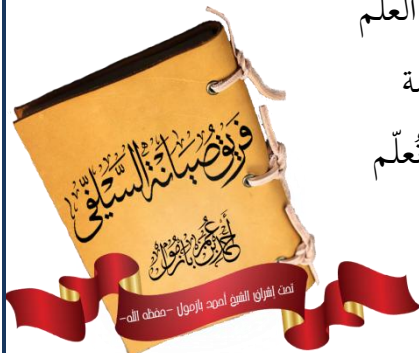 العلم
ة
تُعلّم
فريق صيانة السلفي
أحمد بن عمر بازمول
تحت إشراف الشيخ أحمد بازمول -حفظه الله-